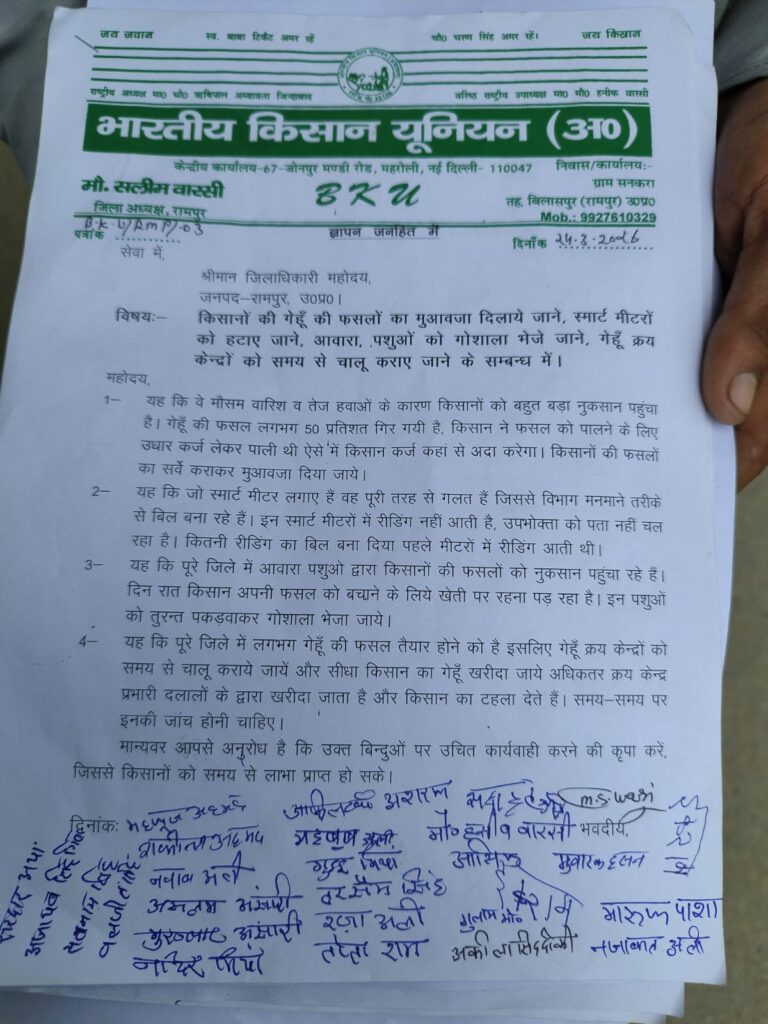 जय जवान स्व. बाबा टिकैत अमर रहें चौ0 चरण सिंह अमर रहें। जय किसान
राष्ट्रीय अध्यक्ष मा0 चौ0 ऋषिपाल अम्बावता जिन्दाबाद वरिष्ठ राष्ट्रीय उपाध्यक्ष मा0 मौ0 हनीफ वारसी
भारतीय किसान यूनियन (अ0)
केन्द्रीय कार्यालय-67-जोनपुर मण्डी रोड, महरोली, नई दिल्ली- 110047 निवास/कार्यालय:-
मौ. सलीम वारसी BKU ग्राम सनकरा
जिला अध्यक्ष, रामपुर तह. बिलासपुर (रामपुर) उ0प्र0
Mob.: 9927610329
पत्रांक B.K.U/RMP/03 ज्ञापन जनहित में दिनाँक 24.3.2026
सेवा में,
श्रीमान जिलाधिकारी महोदय,
जनपद-रामपुर, उ0प्र0।
विषय:- किसानों की गेहूँ की फसलों का मुआवजा दिलाये जाने, स्मार्ट मीटरों
को हटाए जाने, आवारा, पशुओं को गोशाला भेजे जाने, गेहूँ क्रय
केन्द्रों को समय से चालू कराए जाने के सम्बन्ध में।
महोदय,
1- यह कि वे मौसम वारिश व तेज हवाओं के कारण किसानों को बहुत बड़ा नुकसान पहुंचा
है। गेहूं की फसल लगभग 50 प्रतिशत गिर गयी है, किसान ने फसल को पालने के लिए
उधार कर्ज लेकर पाली थी ऐसे में किसान कर्ज कहां से अदा करेगा। किसानों की फसलों
का सर्वे कराकर मुआवजा दिया जाये।
2- यह कि जो स्मार्ट मीटर लगाए हैं वह पूरी तरह से गलत हैं जिससे विभाग मनमाने तरीके
से बिल बना रहे हैं। इन स्मार्ट मीटरों में रीडिंग नहीं आती है, उपभोक्ता को पता नहीं चल
रहा है। कितनी रीडिंग का बिल बना दिया पहले मीटरों में रीडिंग आती थी।
3- यह कि पूरे जिले में आवारा पशुओ द्वारा किसानों की फसलों को नुकसान पहुंचा रहे हैं।
दिन रात किसान अपनी फसल को बचाने के लिये खेती पर रहना पड़ रहा है। इन पशुओं
को तुरन्त पकड़वाकर गोशाला भेजा जाये।
4- यह कि पूरे जिले में लगभग गेहूँ की फसल तैयार होने को है इसलिए गेहूँ क्रय केन्द्रों को
समय से चालू कराये जायें और सीधा किसान का गेहूँ खरीदा जाये अधिकतर क्रय केन्द्र
प्रभारी दलालों के द्वारा खरीदा जाता है और किसान का टहला देते हैं। समय-समय पर
इनकी जांच होनी चाहिए।
मान्यवर आपसे अनुरोध है कि उक्त बिन्दुओं पर उचित कार्यवाही करने की कृपा करें,
जिससे किसानों को समय से लाभा प्राप्त हो सके।
दिनांक: अशरफ भवदीय,
वारसी
नवाव अली मुबारक हसन
अंसारी तरसैम सिंह
अंसारी रजा अली गुलाम मौ0 पाशा
मियां तोता राम नजाकत अली